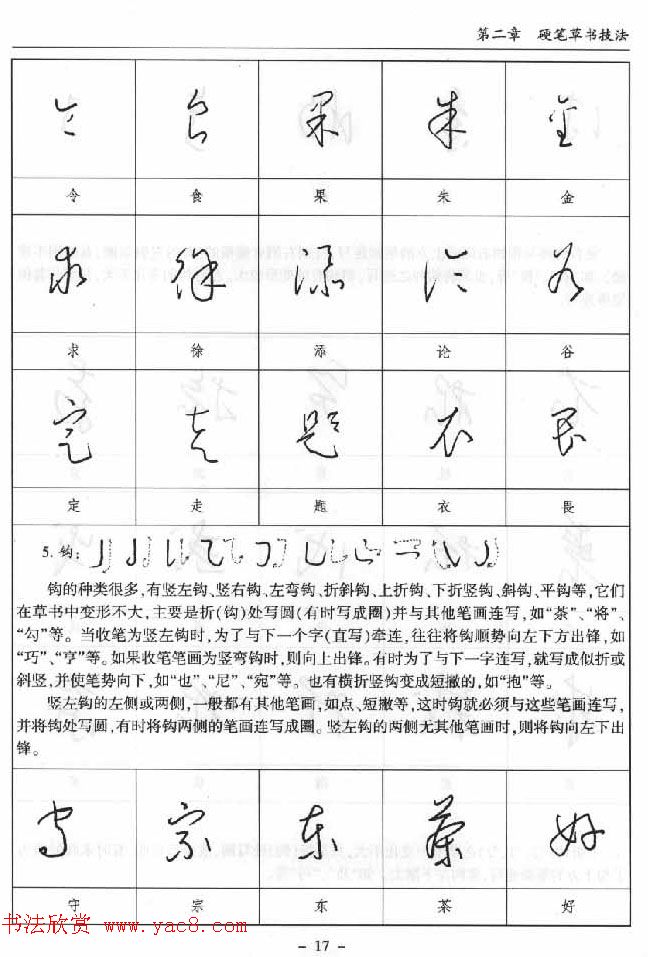 第二章 硬笔草书技法
令 食 果 朱 金
令 食 果 朱 金
求 徐 添 论 谷
求 徐 添 论 谷
定 走 题 衣 畏
定 走 题 衣 畏
5. 钩:
钩的种类很多,有竖左钩、竖右钩、左弯钩、折斜钩、上折钩、下折竖钩、斜钩、平钩等,它们
在草书中变形不大,主要是折(钩)处写圆(有时写成圈)并与其他笔画连写,如“茶”、“将”、
“勾”等。当收笔为竖左钩时,为了与下一个字(直写)牵连,往往将钩顺势向左下方出锋,如
“巧”、“亨”等。如果收笔笔画为竖弯钩时,则向上出锋。有时为了与下一字连写,就写成似折或
斜竖,并使笔势向下,如“也”、“尼”、“宛”等。也有横折竖钩变成短撇的,如“抱”等。
竖左钩的左侧或两侧,一般都有其他笔画,如点、短撇等,这时钩就必须与这些笔画连写,
并将钩处写圆,有时将钩两侧的笔画连写成圈。竖左钩的两侧无其他笔画时,则将钩向左下出
锋。
守 宗 东 茶 好
守 宗 东 茶 好
书法欣赏 www.yac8.com
- 17 -